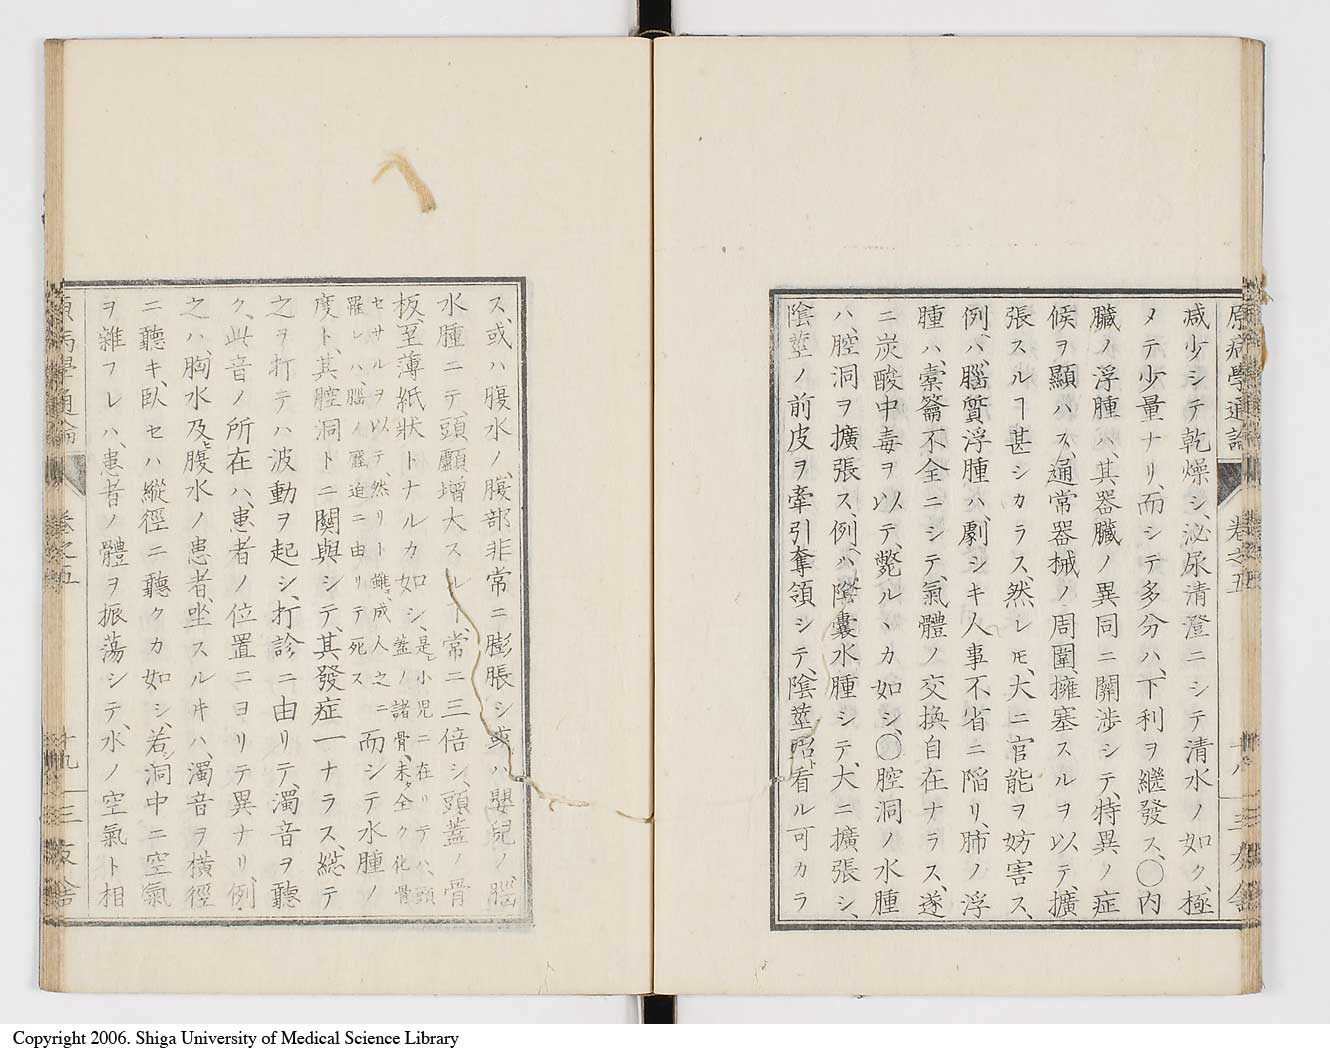 原病學通論 卷之五 十八 三友舍
减少シテ乾燥シ、泌尿清澄ニシテ清水ノ如ク、極
メテ少量ナリ、而シテ多分ハ、下利ヲ繼發ス、〇內
臟ノ浮腫ハ、其器臟ノ異同ニ關渉シテ、特異ノ症
候ヲ顯ハス、通常器械ノ周圍、擁塞スルヲ以テ、擴
張スルヿ甚シカラス、然レ𪜈、大ニ官能ヲ妨害ス、
例ハ、腦質浮腫ハ、劇シキ人事不省ニ陷リ、肺ノ浮
腫ハ、橐籥不全ニシテ、氣體ノ交換自在ナラス、遂
ニ炭酸中毒ヲ以テ、斃ルヽカ如シ、〇腔洞ノ水腫
ハ、腔洞ヲ擴張ス、例ハ、陰囊水腫シテ、大ニ擴張シ、
陰莖ノ前皮ヲ牽引奪領シテ、陰莖殆ト看ル可カラ
ス、或ハ腹水ノ、腹部非常ニ膨脹シ或ハ嬰兒ノ、腦
水腫ニテ、頭顱增大スルヿ常ニ三倍シ、頭蓋ノ骨
板至薄紙狀トナルカ如シ、是レ小兒ニ在リテハ、頭
蓋ノ諸骨、未タ全ク化骨
セサルヲ以テ、然リト雖、成人之ニ
罹レハ、腦ノ壓迫ニ由リテ死ス而シテ水腫ノ
度ト、其腔洞トニ關與シテ、其發症一ナラス、總テ
之ヲ打テハ波動ヲ起シ、打診ニ由リテ、濁音ヲ聽
ク、此音ノ所在ハ、患者ノ位置ニヨリテ異ナリ、例
之ハ、胸水及ヒ腹水ノ患者、坐スルヰハ、濁音ヲ橫徑
ニ聽キ、臥セハ縱徑ニ聽クカ如シ、若シ洞中ニ空氣
ヲ雜フレハ、患者ノ體ヲ振蕩シテ、水ノ空氣ト相
原病學通論 卷之五 十九 三友舍
Copyright 2006. Shiga University of Medical Science Library